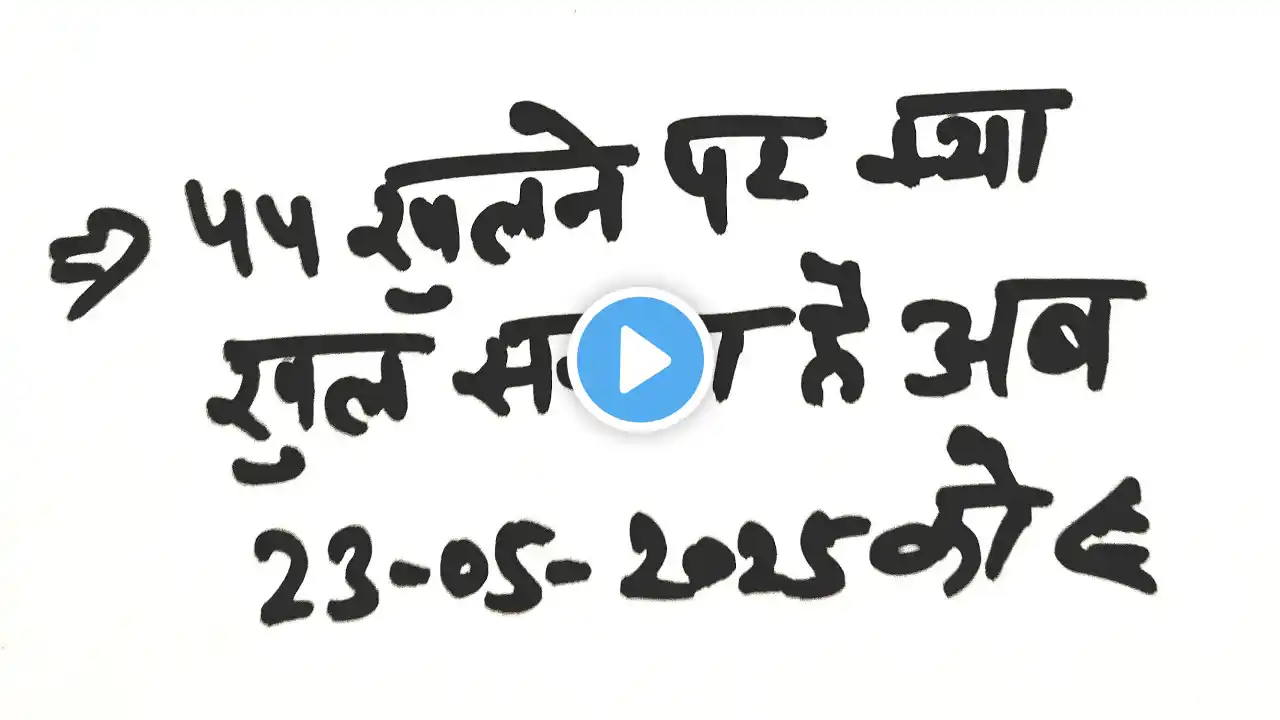 44 खुलने पर क्या
खुल सकता है अब
23-05-2025 को